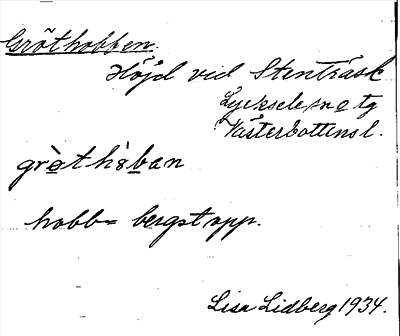 Gröthobben.
Höjd vid Stenträsk
Lycksele sn o tg
Västerbottensl.
grøthòban
hobb = bergstopp.
Lisa Lidberg 1934.